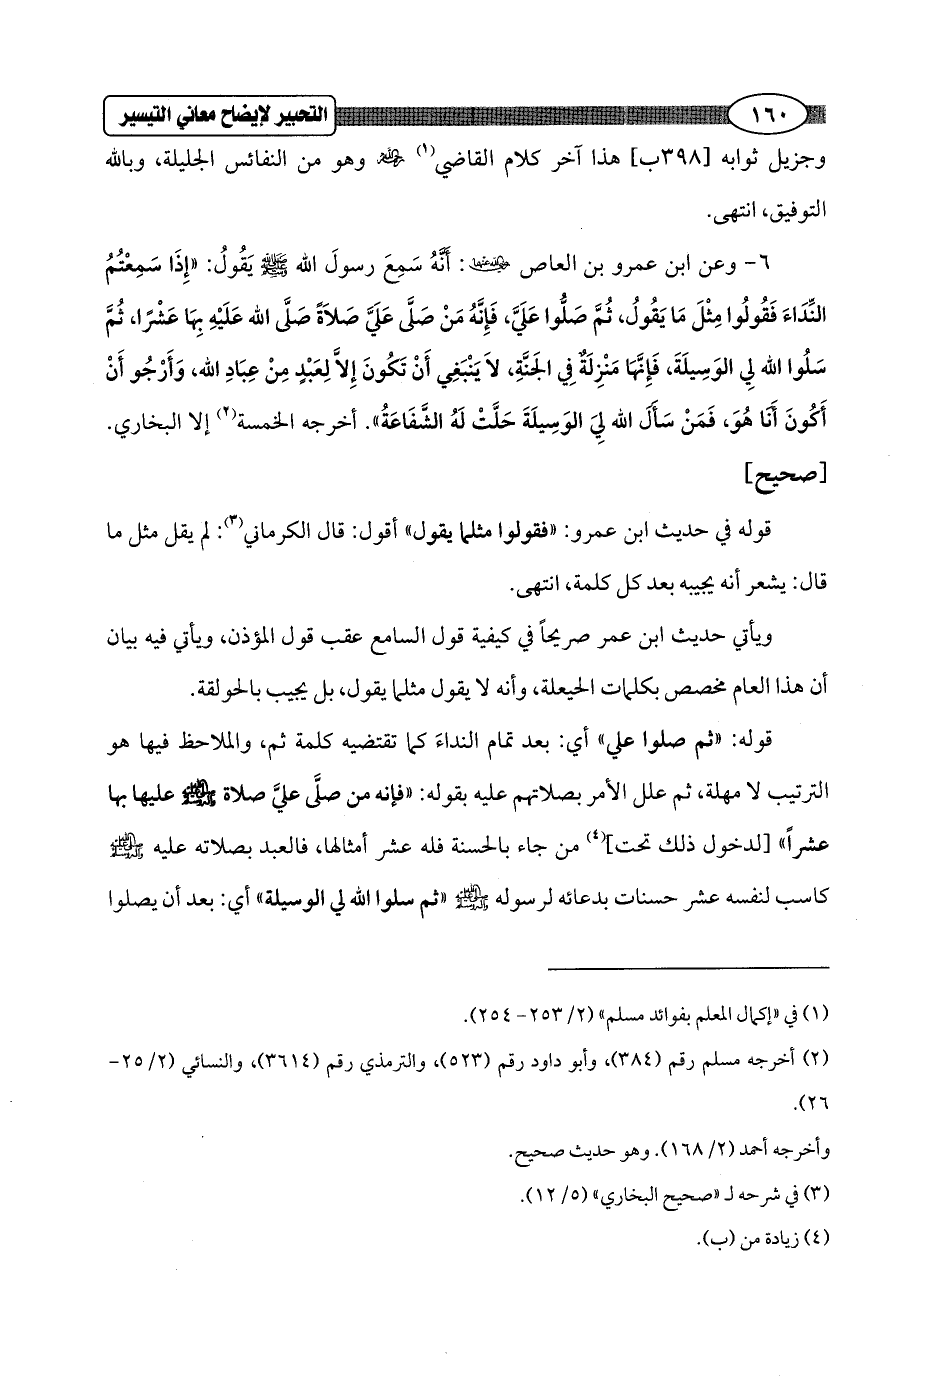 ١٦٠ التحبير لإيضاح معاني التيسير
وجزيل ثوابه [٣٩٨ب] هذا آخر كلام القاضي(١) رحمه الله وهو من النفائس الجليلة، وبالله
التوفيق، انتهى.
٦- وعن ابن عمرو بن العاص رضي الله عنهما: أَنَّهُ سَمِعَ رسولَ الله ﷺ يَقُولُ: «إِذَا سَمِعْتُمُ
النِّدَاءَ فَقُولُوا مِثْلَ مَا يَقُولُ، ثُمَّ صَلُّوا عَلَيَّ، فَإِنَّهُ مَنْ صَلَّى عَلَيَّ صَلاَةً صَلَّى الله عَلَيْهِ بِهَا عَشْرًا، ثُمَّ
سَلُوا الله لِي الوَسِيلَةَ، فَإِنَّهَا مَنْزِلَةٌ فِي الجَنَّةِ، لاَ يَنْبَغِي أَنْ تَكُونَ إِلاَّ لِعَبْدٍ مِنْ عِبَادِ الله، وَأَرْجُو أَنْ
أَكُونَ أَنَا هُوَ، فَمَنْ سَأَلَ الله لِيَ الوَسِيلَةَ حَلَّتْ لَهُ الشَّفَاعَةُ». أخرجه الخمسة(٢) إلا البخاري.
[صحيح]
قوله في حديث ابن عمرو: «فقولوا مثلما يقول» أقول: قال الكرماني(٣): لم يقل مثل ما
قال: يشعر أنه يجيبه بعد كل كلمة، انتهى.
ويأتي حديث ابن عمر صريحاً في كيفية قول السامع عقب قول المؤذن، ويأتي فيه بيان
أن هذا العام مخصص بكلمات الحيعلة، وأنه لا يقول مثلما يقول، بل يجيب بالحولقة.
قوله: «ثم صلوا علي» أي: بعد تمام النداء كما تقتضيه كلمة ثم، والملاحظ فيها هو
الترتيب لا مهلة، ثم علل الأمر بصلاتهم عليه بقوله: «فإنه من صلَّى عليَّ صلاة ﷺ عليها بها
عشراً» [لدخول ذلك تحت](٤) من جاء بالحسنة فله عشر أمثالها، فالعبد بصلاته عليه ﷺ
كاسب لنفسه عشر حسنات بدعائه لرسوله ﷺ «ثم سلوا الله لي الوسيلة» أي: بعد أن يصلوا
(١) في «إكمال المعلم بفوائد مسلم» (٢/ ٢٥٣- ٢٥٤).
(٢) أخرجه مسلم رقم (٣٨٤)، وأبو داود رقم (٥٢٣)، والترمذي رقم (٣٦١٤)، والنسائي (٢/ ٢٥-
٢٦).
وأخرجه أحمد (٢/ ١٦٨). وهو حديث صحيح.
(٣) في شرحه لـ «صحيح البخاري» (٥/ ١٢).
(٤) زيادة من (ب).